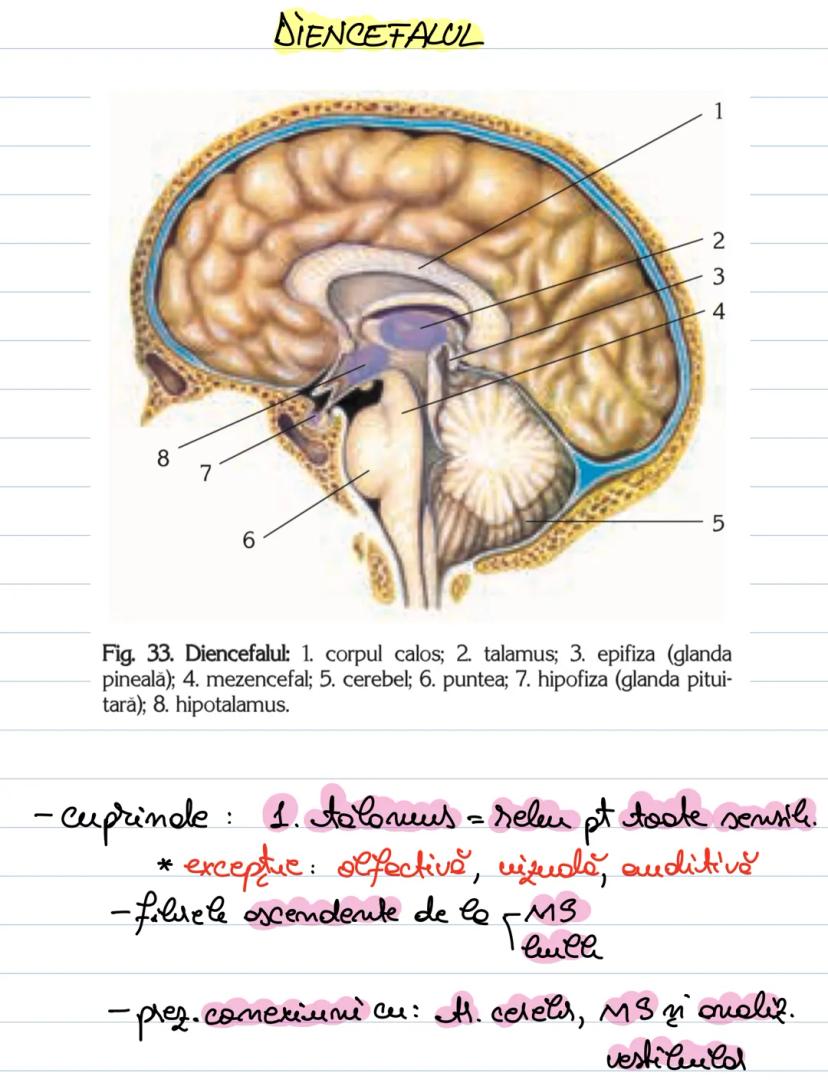 DIENCEFALUL
1
2
3
4
8
7
6
5
Fig. 33. Diencefalul: 1. corpul calos; 2. talamus; 3. epifiza (glanda
pineală); 4. mezencefal; 5. cerebel; 6. puntea; 7. hipofiza (glanda pitui-
tară); 8. hipotalamus.
- cuprinde : 1. talamus = releu pt toate sensib.
* excepție: olfactivă, vizuală, auditivă
- fibrele ascendente de la MS
bulb
- prez. conexiuni cu: tr. cerebr, MS și analiz.
vestibular